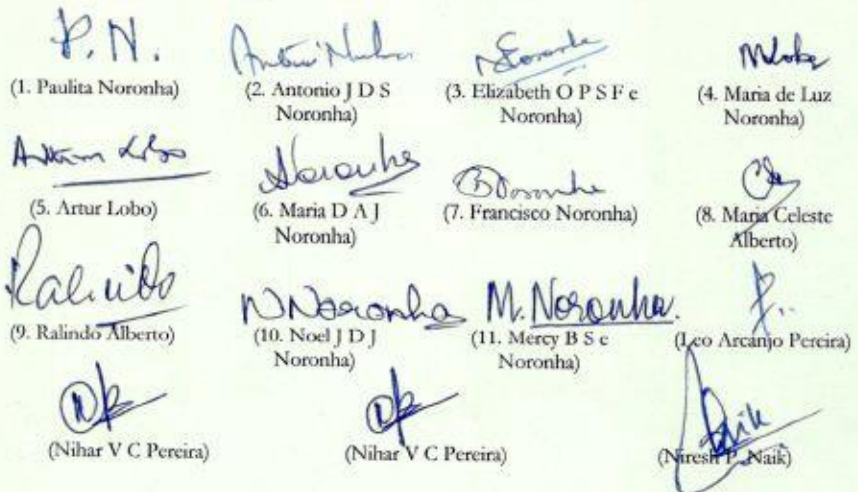 P. N.
(1. Paulita Noronha)
(2. Antonio J D S
Noronha)
Noronha
(3. Elizabeth O P S F e
Noronha)
MLobo
(4. Maria de Luz
Noronha)
Lobo
(5. Artur Lobo)
Noronha
(6. Maria D A J
Noronha)
Noronha
(7. Francisco Noronha)
(8. Maria Celeste
Alberto)
Ralindo
(9. Ralindo Alberto)
N Noronha
(10. Noel J D J
Noronha)
M. Noronha.
(11. Mercy B S e
Noronha)
(Leo Arcanjo Pereira)
(Nihar V C Pereira)
(Nihar V C Pereira)
Naik
(Niresh P. Naik)